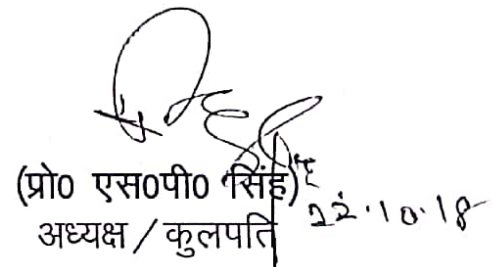 (प्रो० एस०पी० सिंह)
22.10.18
अध्यक्ष / कुलपति